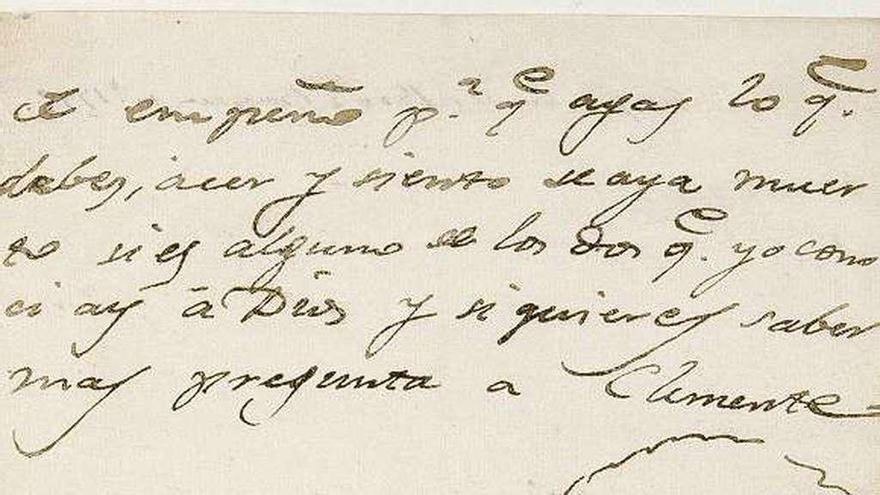 empeño p.ª q.e agas lo q.e
debes, acer y siento se aya muer
to si es alguno de los dos q.e yo cono
ci ay â Dios y si quieres saber
mas pregunta a Clemente